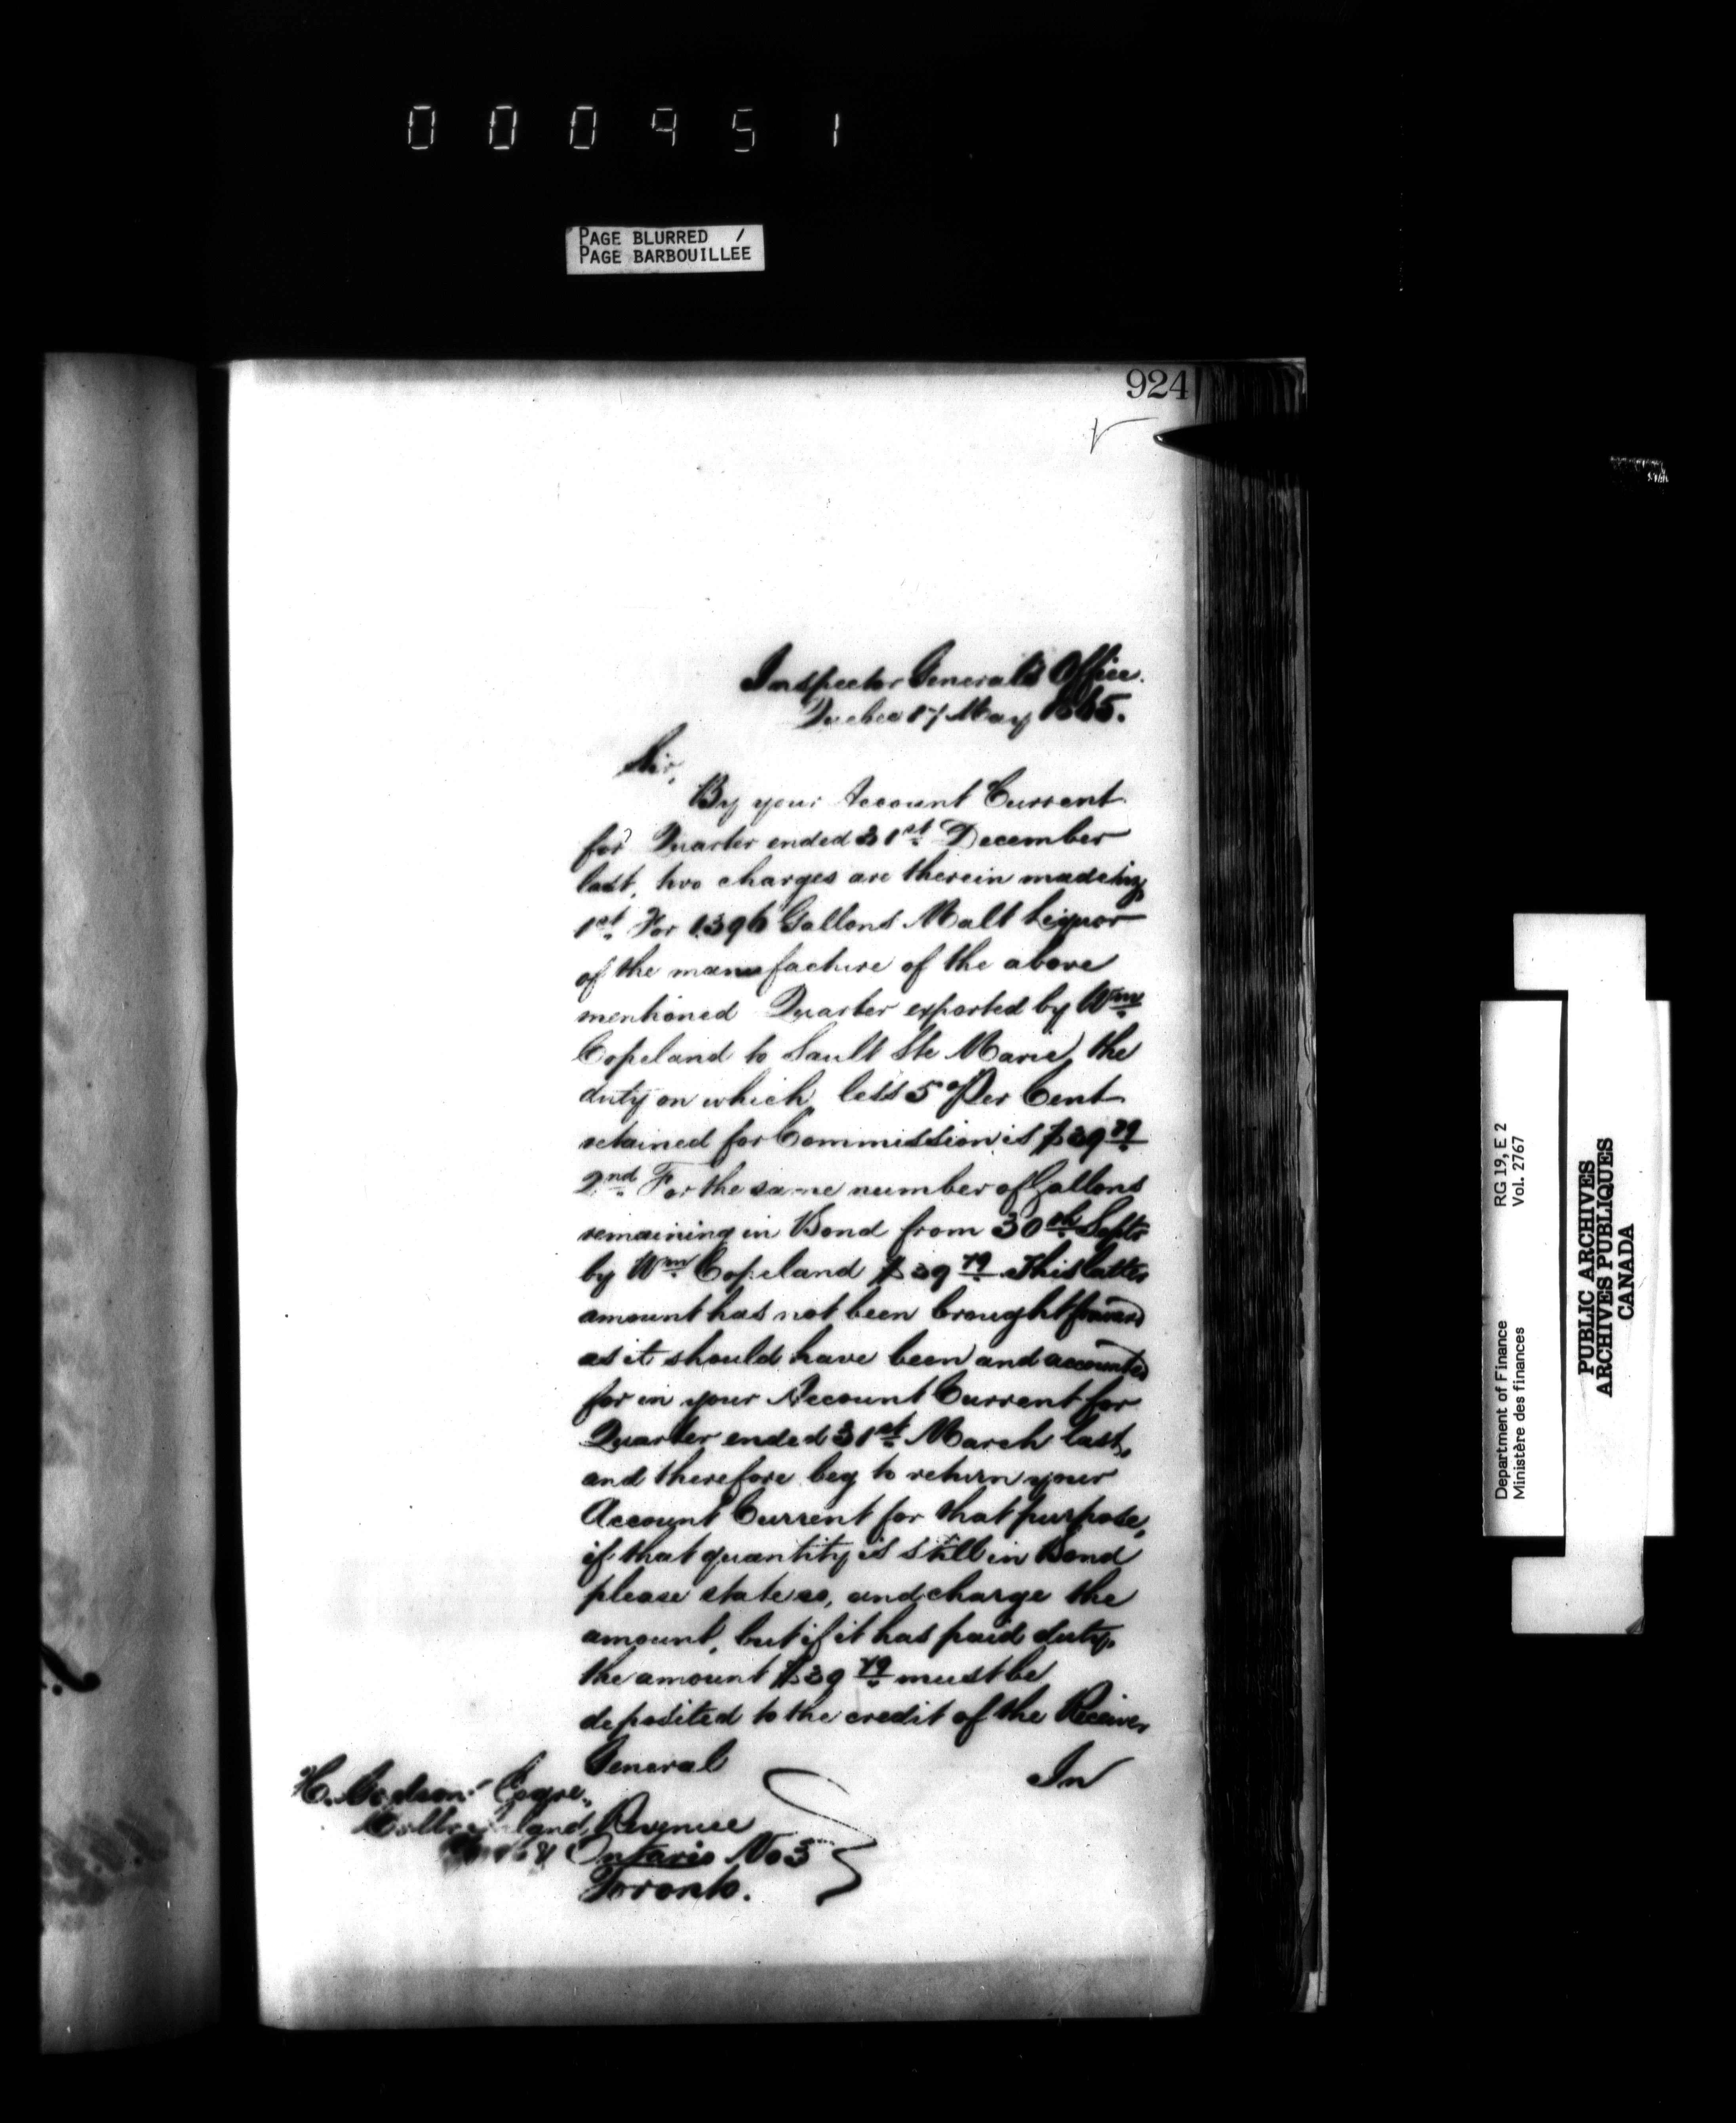 000951
PAGE BLURRED /
PAGE BARBOUILLÉE
924
Inspector General's Office.
Quebec 17 May 1865.
Sir,
By your Account Current
for Quarter ended 31st December
last, two charges are therein made
1st For 1396 Gallons Malt Liquor
of the manufacture of the above
mentioned Quarter exported by Wm
Copeland to Sault Ste Marie, the
duty on which less 5 Per Cent
retained for Commission is $39 79
2nd For the same number of Gallons
remaining in Bond from 30th Septr
by Wm Copeland $39 79 This latter
amount has not been brought forward
as it should have been and accounted
for in your Account Current for
Quarter ended 31st March last,
and therefore beg to return your
Account Current for that purpose,
if that quantity is still in Bond
please state so, and charge the
amount, but if it has paid duty,
the amount $39 79 must be
deposited to the credit of the Receiver
General
In
H. Godson Esqre.
Inland Revenue
Ontario No 3
Toronto.
Department of Finance RG 19, E 2
Ministère des finances Vol. 2767
PUBLIC ARCHIVES
ARCHIVES PUBLIQUES
CANADA